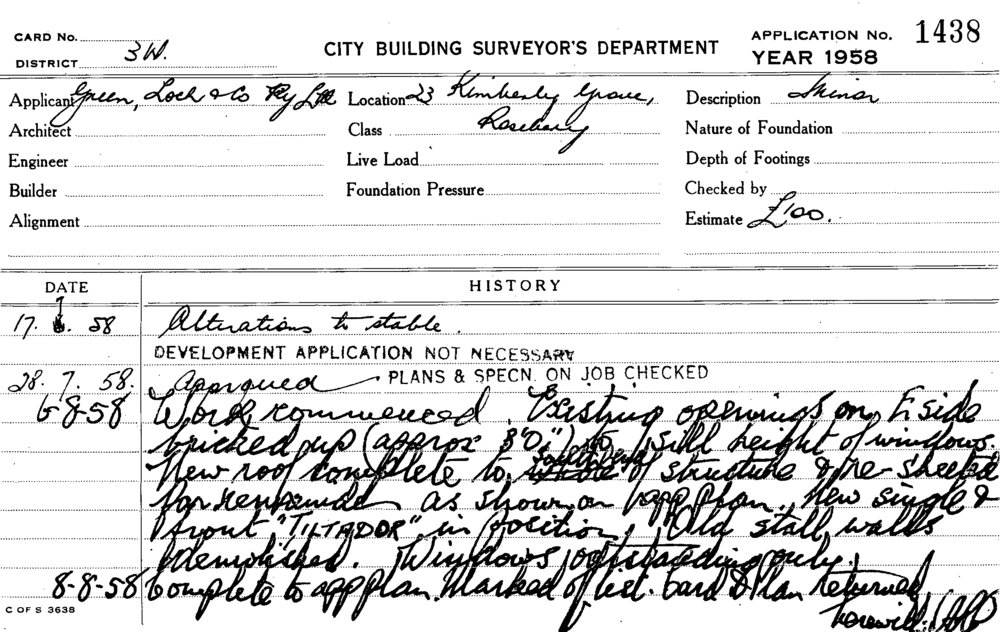 CARD No.
DISTRICT 3W.
CITY BUILDING SURVEYOR'S DEPARTMENT
APPLICATION No. 1438
YEAR 1958
Applicant Green, Loch & Co Pty Ltd
Location 23 Kimberley Grove,
Rosebery
Description Minor
Architect
Class
Nature of Foundation
Engineer
Live Load
Depth of Footings
Builder
Foundation Pressure
Checked by
Alignment
Estimate £100.
DATE
HISTORY
17. 7. 58 Alterations to stable.
DEVELOPMENT APPLICATION NOT NECESSARY
28. 7. 58. Approved PLANS & SPECN. ON JOB CHECKED
6-8-58 Work commenced. Existing openings on E side
bricked up (approx 3'0") to sill height of windows.
New roof complete to of structure & re-sheeted
as shown on app plan. New single &
front "TILTADOR" in position. Old stall walls
demolished. Windows outstanding only.
8-8-58 Complete to app plan. Marked off. Card & Plan returned
herewith.
C OF S 3638